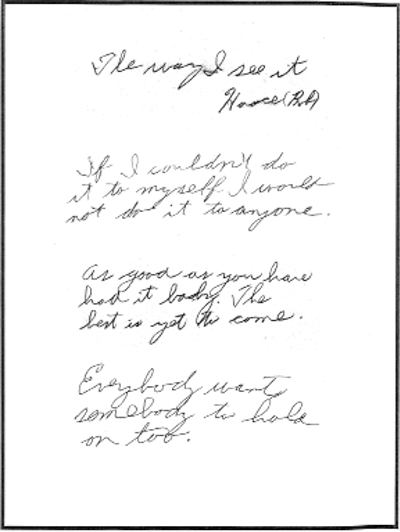 The way I see it
If I couldn't do
it to myself I would
not do it to anyone.
As good as you have
had it baby. The
best is yet to come.
Everybody wants
somebody to hold
on too.